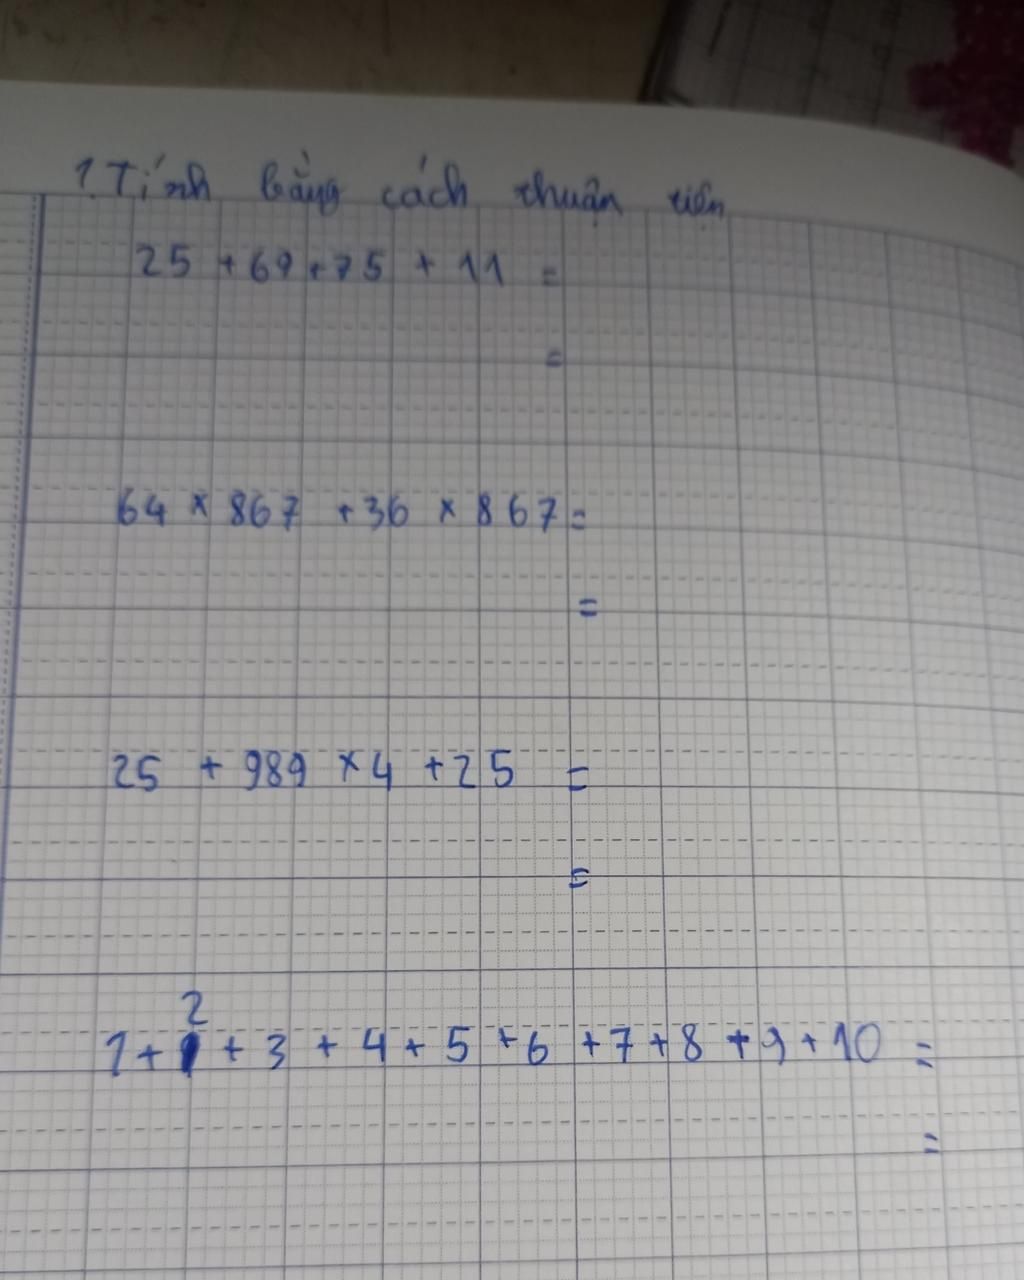 1. Tính bằng cách thuận tiện
25 + 69 + 75 + 11 =
=
64 × 867 + 36 × 867 =
=
25 + 989 × 4 + 25 =
=
2
1 + + 3 + 4 + 5 + 6 + 7 + 8 + 9 + 10 =
=